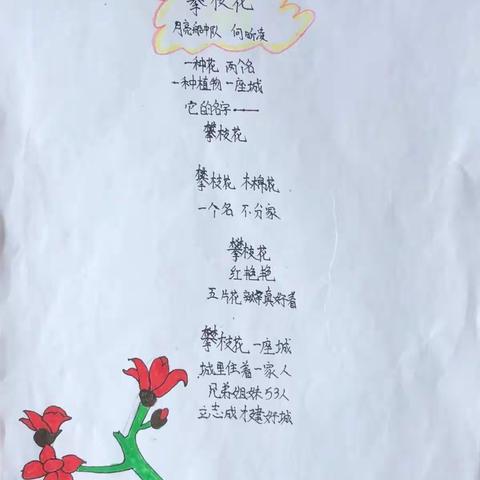 攀枝花
月亮船中队 何昕凌
一种花 两个名
一种植物 一座城
它的名字——
攀枝花
攀枝花 木棉花
一个名 不分家
攀枝花
红艳艳
五片花瓣真好看
攀枝花 一座城
城里住着一家人
兄弟姐妹53人
立志成才建好城